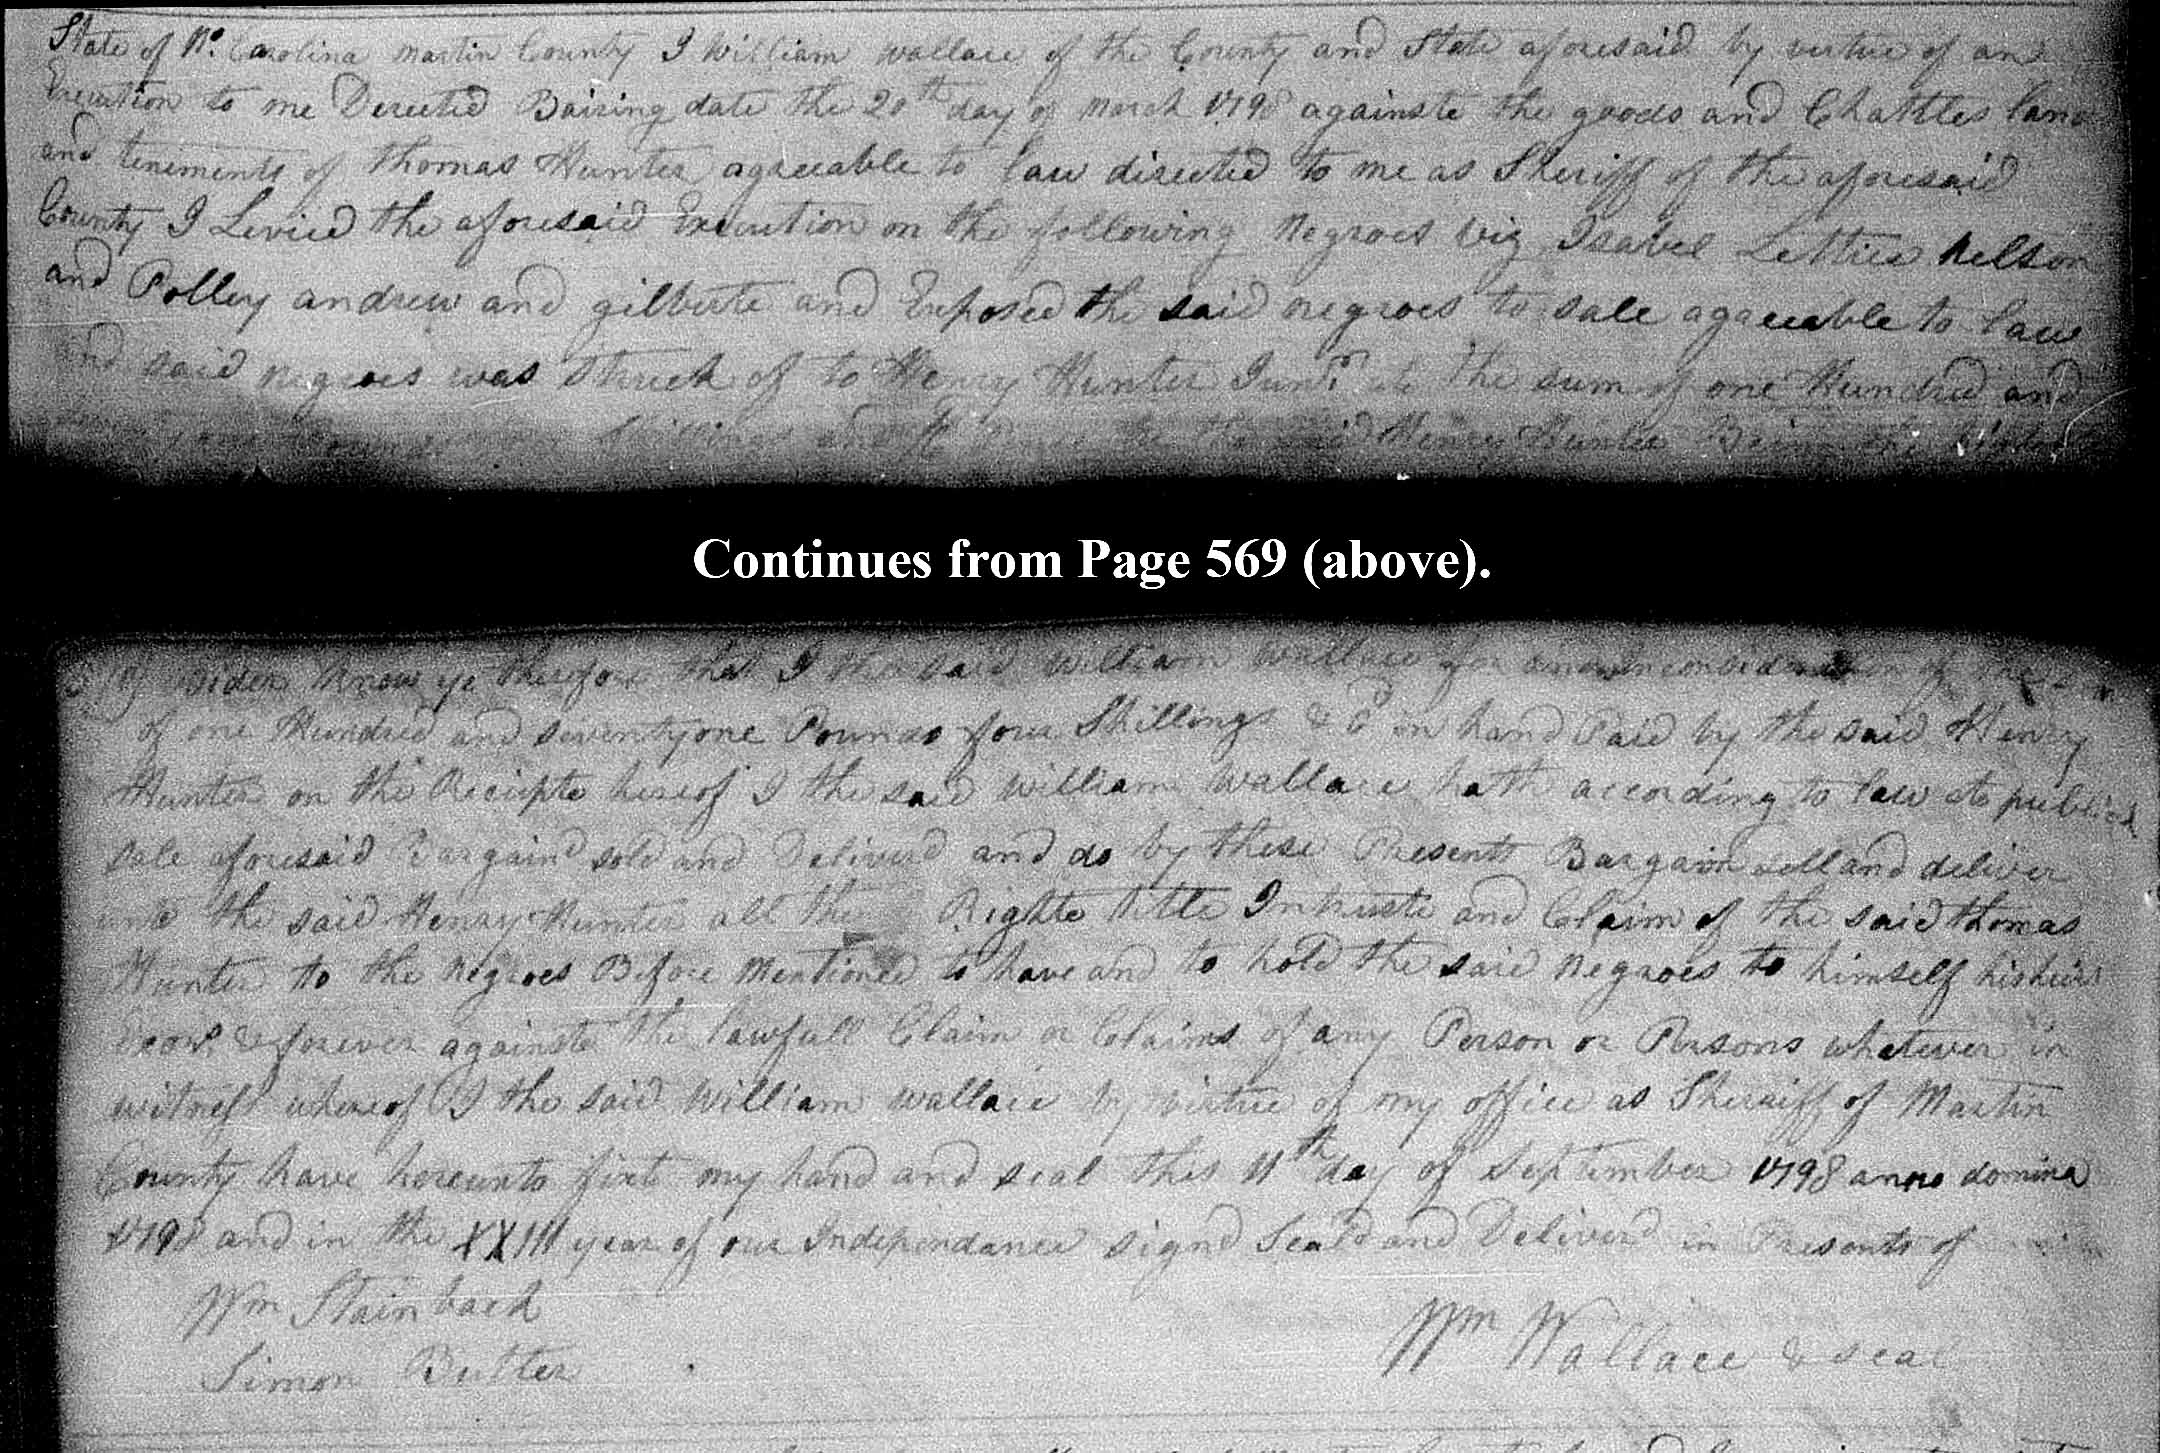 State of No. Carolina Martin County I William Wallace of the County and State aforesaid by virtue of an
Execution to me Directed Bairing date the 20th day of March 1798 againste the goods and Chattles land
and tenements of Thomas Hunter agreeable to law directed to me as Sheriff of the aforesaid
County I Levied the aforesaid Execution on the following Negroes viz Isabel Lettice Nelson
and Polley andrew and gilberte and Exposed the said negroes to sale agreeable to law
and said negroes was Struck of to Henry Hunter Junr. at the sum of one Hundred and
Shillings and Pence he the said Henry Hunter Being the
Continues from Page 569 (above).
Bider Know ye therefore that I the said William Wallace for and in consideration of the sum
of one Hundred and seventy one Pounds four Shillings & in hand Paid by the said Henry
Hunter on the Reciepte hereof I the said William Wallace hath according to law ate publick
sale aforesaid Bargaind sold and Deliverd and do by these Presents Bargain sell and deliver
unto the said Henry Hunter all the Righte title Intruste and Claim of the said Thomas
Hunter to the Negroes Before Mentioned to have and to hold the said Negroes to himself his heirs
Exors. & forever againste the lawfull Claim or Claims of any Person or Persons whatever in
witness whereof I the said William Wallace by virtue of my office as Sherriff of Martin
County have hereunto fixt my hand and seal this 11th day of September 1798 anno domina
1798 and in the XXIII year of our Independance Signd Seald and Deliverd in Presents of
Wm Stainback
Wm Wallace & seal
Simon Butler